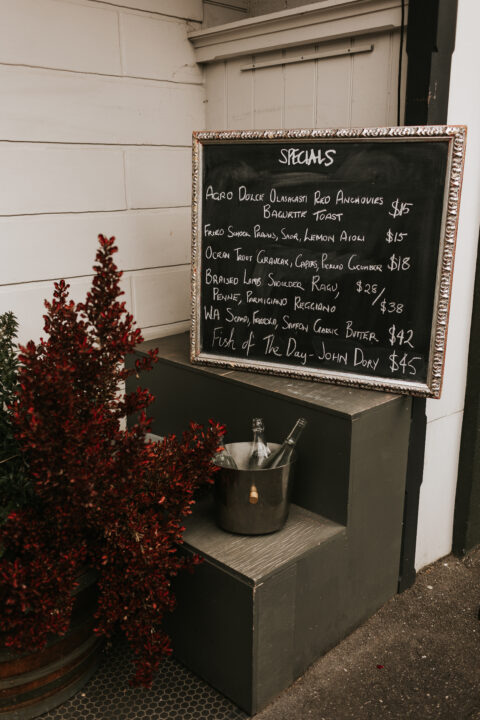 SPECIALS
AGRO DOLCE OLASAGASTI RED ANCHOVIES
BAGUETTE TOAST $15
FRIED SCHOOL PRAWNS, LEMON AIOLI $15
OCEAN TROUT GRAVLAX, CAPERS, PICKLED CUCUMBER $18
BRAISED LAMB SHOULDER RAGU, $28/
PENNE, PARMIGIANO REGGIANO $38
WA FREGOLA, SAFFRON GARLIC BUTTER $42
FISH OF THE DAY - JOHN DORY $45